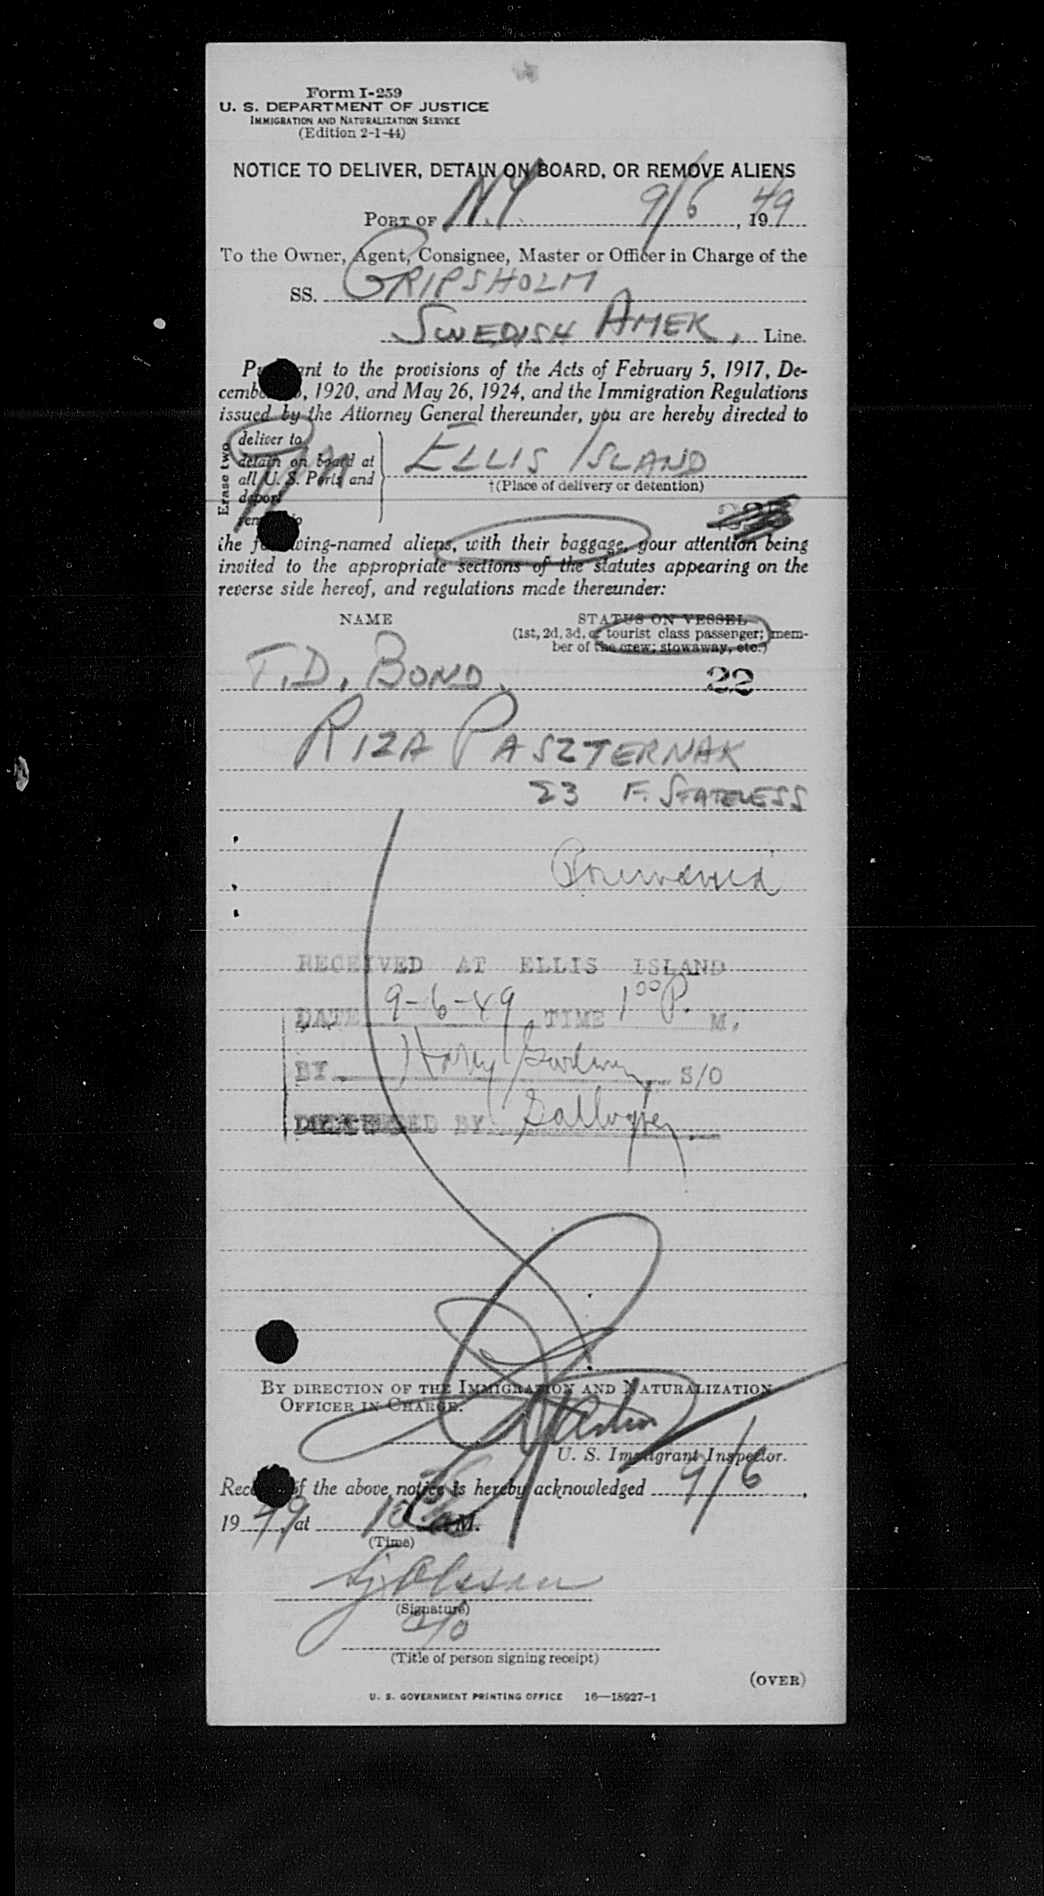 Form I-259
U. S. DEPARTMENT OF JUSTICE
IMMIGRATION AND NATURALIZATION SERVICE
(Edition 2-1-44)
NOTICE TO DELIVER, DETAIN ON BOARD, OR REMOVE ALIENS
PORT OF N.Y. 9/6, 1949
To the Owner, Agent, Consignee, Master or Officer in Charge of the
SS. GRIPSHOLM
SWEDISH AMER. Line.
to the provisions of the Acts of February 5, 1917, De-
, 1920, and May 26, 1924, and the Immigration Regulations
issued by the Attorney General thereunder, you are hereby directed to
Erase two
deliver to
detain on board at
all U. S. Ports and
deport
ELLIS ISLAND
†(Place of delivery or detention)
the following-named aliens, with their baggage, your attention being
invited to the appropriate sections of the statutes appearing on the
reverse side hereof, and regulations made thereunder:
NAME STATUS ON VESSEL
(1st, 2d, 3d, or tourist class passenger; mem-
ber of the crew; stowaway, etc.)
T.D. BOND. 22
RIZA PASZTERNAK
23 F. STATELESS
RECEIVED AT ELLIS ISLAND
DATE 9-6-49 TIME 1 00 P. M.
BY Harry S/O
BY
BY DIRECTION OF THE IMMIGRATION AND NATURALIZATION
OFFICER IN CHARGE.
U. S. Immigrant Inspector.
of the above notice is hereby acknowledged 9/6,
1949, at M.
(Time)
Olsson
(Signature)
(Title of person signing receipt)
(OVER)
U. S. GOVERNMENT PRINTING OFFICE 16—18927-1